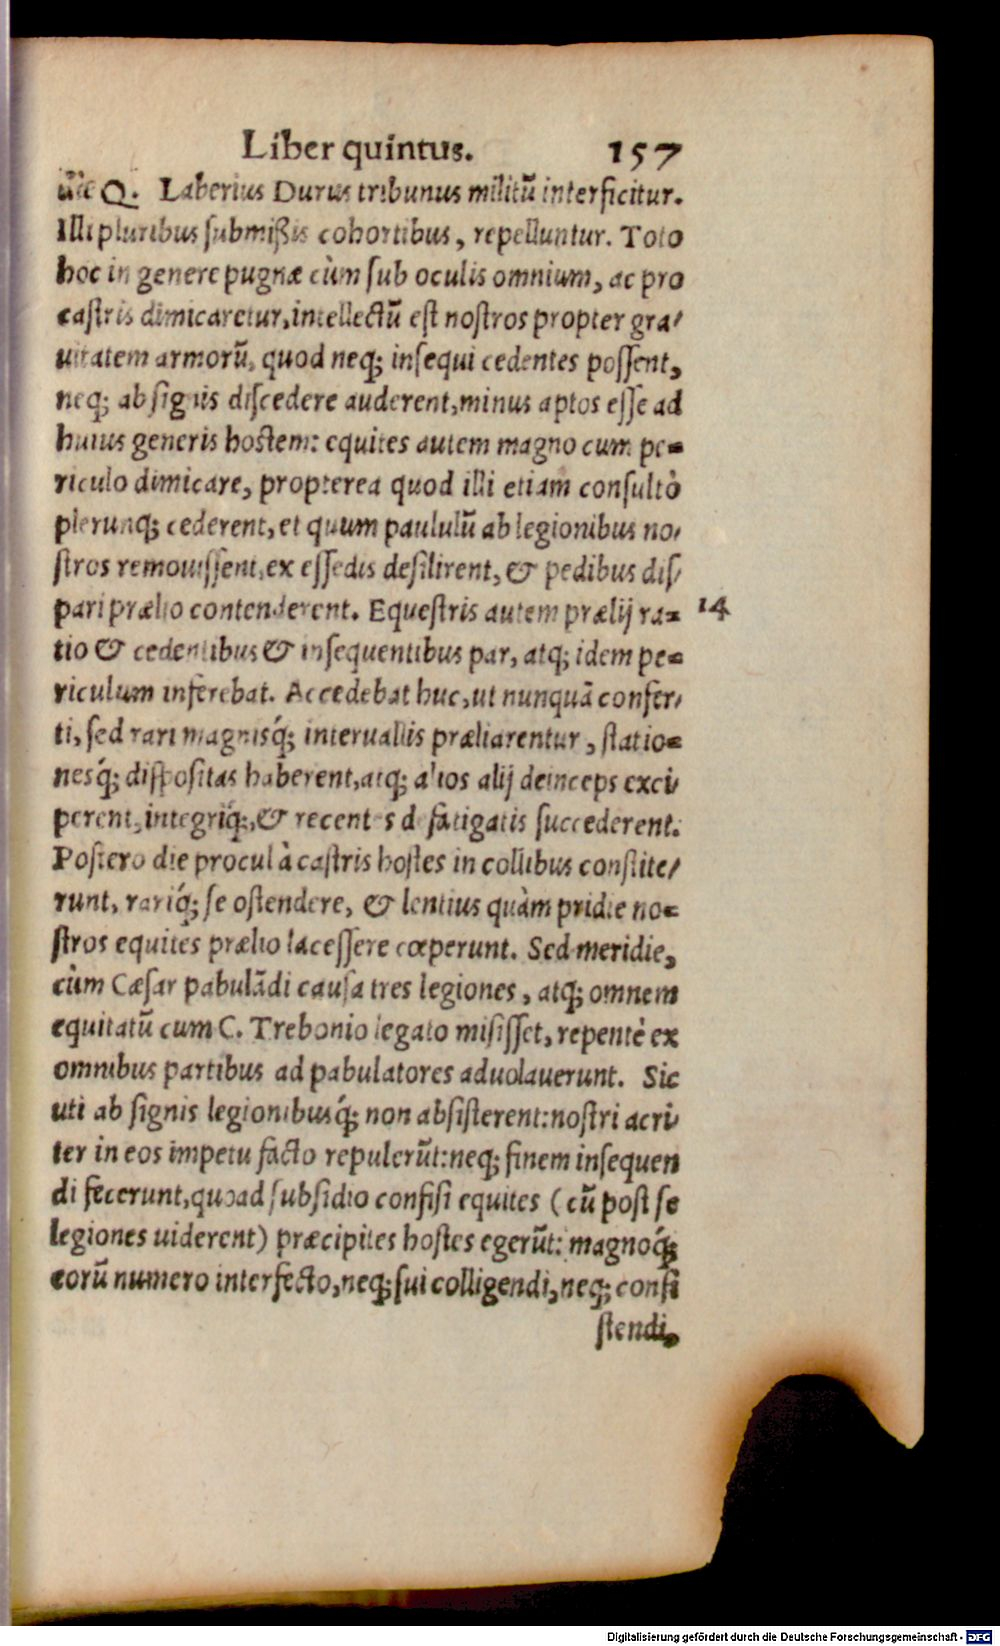 Liber quintus. 157
die Q. Laberius Durus tribunus militū interficitur.
Illi pluribus submißis cohortibus, repelluntur. Toto
hoc in genere pugnæ cùm sub oculis omnium, ac pro
castris dimicaretur, intellectū est nostros propter gra-
uitatem armorū, quod neq; insequi cedentes possent,
neq; ab signis discedere auderent, minus aptos esse ad
huius generis hostem: equites autem magno cum pe-
riculo dimicare, propterea quod illi etiam consultò
plerunq; cederent, et quum paululū ab legionibus no-
stros remouissent, ex essedis desilirent, & pedibus dis-
pari prælio contenderent. Equestris autem prælij ra- 14
tio & cedentibus & insequentibus par, atq; idem pe-
riculum inferebat. Accedebat huc, ut nunquā confer-
ti, sed rari magnisq́; interuallis præliarentur, statio-
nesq́; dispositas haberent, atq; alios alij deinceps exci-
perent, integriq́;, & recentes defatigatis succederent.
Postero die procul à castris hostes in collibus constite-
runt, rariq́; se ostendere, & lentius quàm pridie no-
stros equites prælio lacessere cœperunt. Sed meridie,
cùm Cæsar pabulādi causa tres legiones, atq; omnem
equitatū cum C. Trebonio legato misisset, repentè ex
omnibus partibus ad pabulatores aduolauerunt. Sic
uti ab signis legionibusq́; non absisterent: nostri acri-
ter in eos impetu facto repulerūt: neq; finem insequen
di fecerunt, quoad subsidio confisi equites (cū post se
legiones uiderent) præcipites hostes egerūt: magnoq́;
eorū numero interfecto, neq; sui colligendi, neq; consi
stendi,
Digitalisierung gefördert durch die Deutsche Forschungsgemeinschaft - DFG